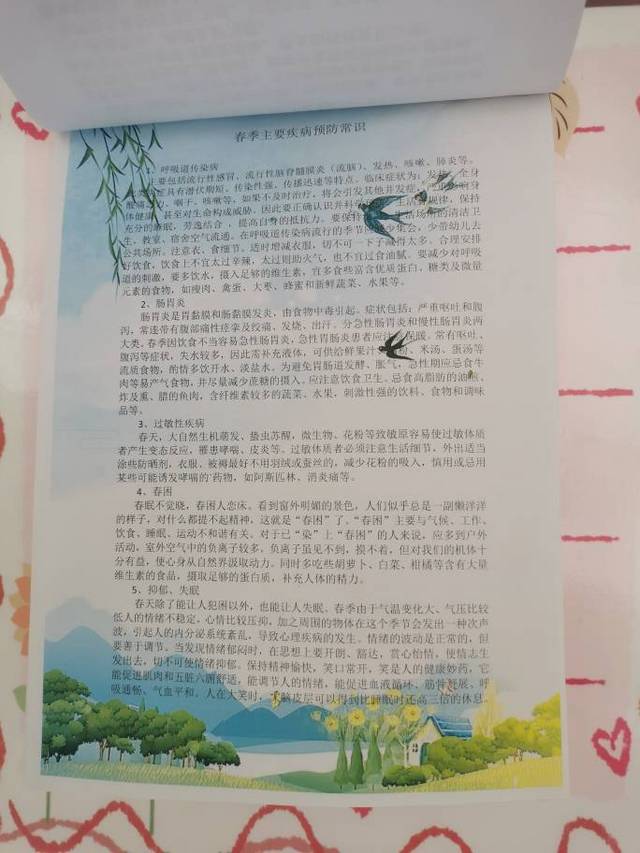 春季主要疾病预防常识
1、呼吸道传染病
主要包括流行性感冒、流行性脑脊髓膜炎（流脑）、发热、咳嗽、肺炎等。
具有潜伏期短、传染性强、传播迅速等特点。临床症状为：发热、全身
力，咽干、咳嗽等，如果不及时治疗，将会引发其他并发症，
体健康，甚至对生命构成威胁，因此要正确认识并科学 生活有规律，保持
充分的睡眠，劳逸结合，提高自身的抵抗力。要保持 生活场所的清洁卫
生，教室、宿舍空气流通。在呼吸道传染病流行的季节 少集会，少带幼儿去
公共场所。注意衣、食细节。适时增减衣服，切不可一下子减得太多。合理安排
好饮食，饮食上不宜太过辛辣，太过则助火气，也不宜过食油腻。要减少对呼吸
道的刺激，要多饮水，摄入足够的维生素，宜多食些富含优质蛋白、糖类及微量
元素的食物，如瘦肉、禽蛋、大枣、蜂蜜和新鲜蔬菜、水果等。
2、肠胃炎
肠胃炎是胃黏膜和肠黏膜发炎，由食物中毒引起。症状包括：严重呕吐和腹
泻，常连带有腹部痛性痉挛及绞痛、发烧、出汗。分急性肠胃炎和慢性肠胃炎两
大类。春季因饮食不当容易急性肠胃炎，急性胃肠炎患者应注意保暖。常有呕吐、
腹泻等症状，失水较多，因此需补充液体，可供给鲜果汁、 粉、米汤、蛋汤等
流质食物，酌情多饮开水、淡盐水。为避免胃肠道发酵、胀气，急性期应忌食牛
肉等易产气食物，并尽量减少蔗糖的摄入。应注意饮食卫生。忌食高脂肪的油煎、
炸及熏、腊的鱼肉，含纤维较多的蔬菜、水果，刺激性强的饮料、食物和调味
品等。
3、过敏性疾病
春天，大自然生机萌发、蛰虫苏醒，微生物、花粉等致敏原容易使过敏体质
者产生变态反应，罹患哮喘、皮炎等。过敏体质者必须注意生活细节，外出适当
涂些防晒剂，衣服、被褥最好不用羽绒或蚕丝的，减少花粉的吸入，慎用或忌用
某些可能诱发哮喘的药物，如阿斯匹林、消炎痛等。
4、春困
春眠不觉晓，春困人恋床。看到窗外明媚的景色，人们似乎总是一副懒洋洋
的样子，对什么都提不起精神，这就是“春困”了。“春困”主要与气候、工作、
饮食、睡眠、运动不和谐有关。对于已“染”上“春困”的人来说，应多到户外
活动，室外空气中的负离子较多，负离子虽见不到，摸不着，但对我们的机体十
分有益，使心身从自然界汲取动力。同时多吃些胡萝卜、白菜、柑橘等含有大量
维生素的食品，摄取足够的蛋白质，补充人体的精力。
5、抑郁、失眠
春天除了能让人犯困以外，也能让人失眠。春季由于气温变化大、气压比较
低人的情绪不稳定，心情比较压抑，加之周围的物体在这个季节会发出一种次声
波，引起人的内分泌系统紊乱，导致心理疾病的发生。情绪的波动是正常的，但
要善于调节。当发现情绪郁闷时，在思想上要开朗、豁达，赏心怡情，使情志生
发出去，切不可使情绪抑郁。保持精神愉快，笑口常开，笑是人的健康妙药，它
能促进肌肉和五脏六腑舒适，能调节人的情绪，能促进血液循环、筋骨舒展、呼
吸通畅、气血平和。人在大笑时，大脑皮层可以得到比睡眠时还高三倍的休息。